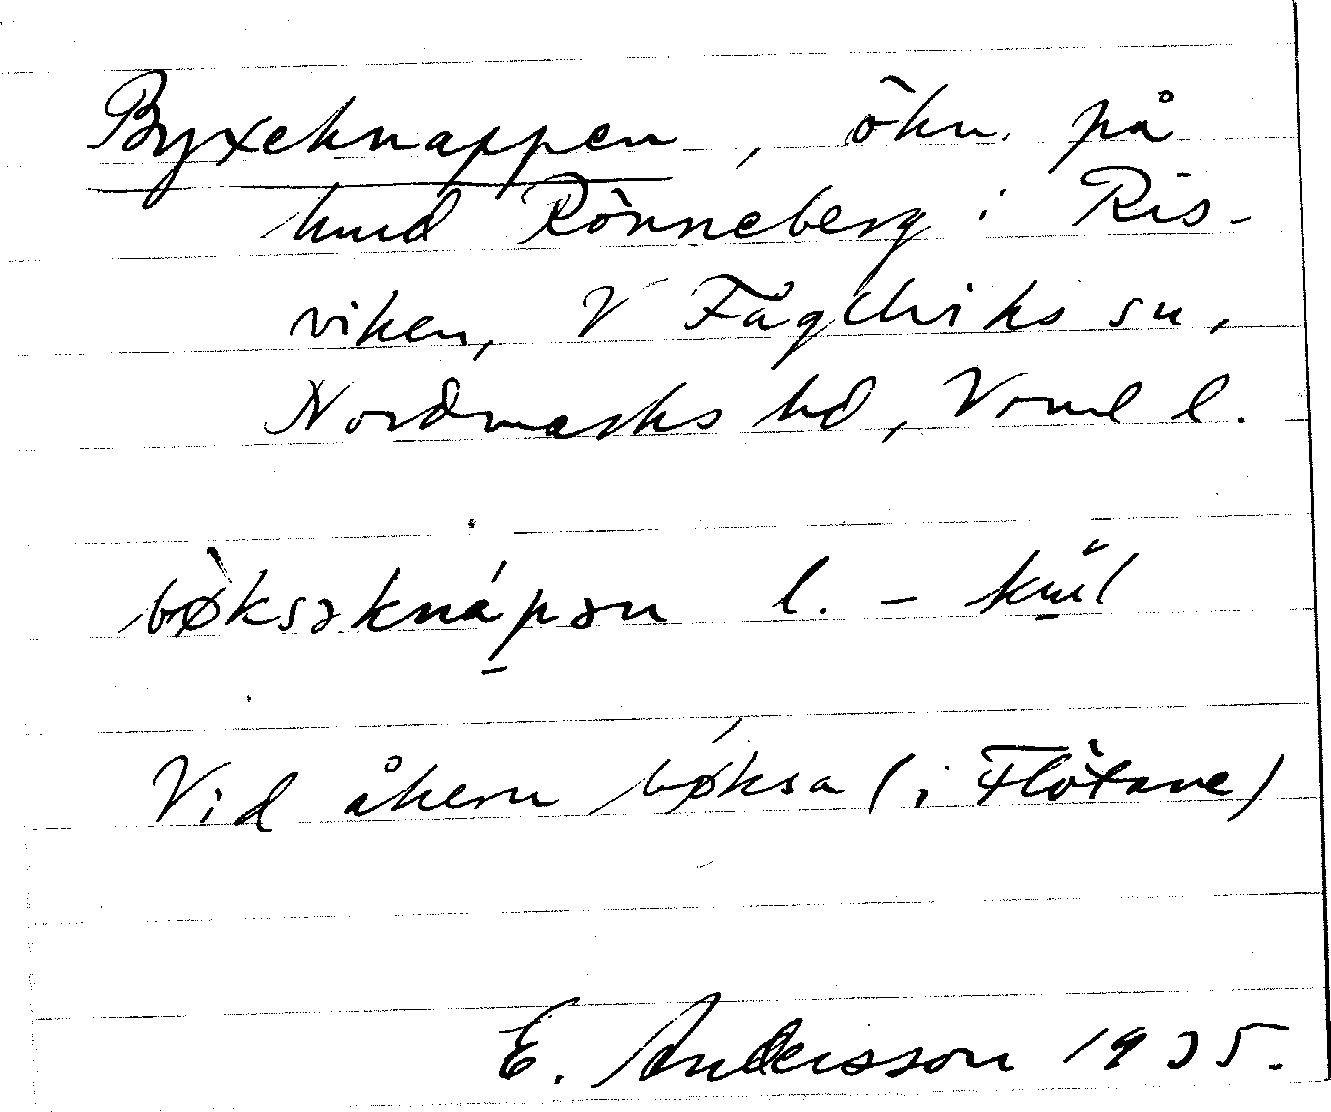 Byxeknappen, ökn. på
hmd Rönneberg i Ris-
viken, V Fågelviks sn,
Nordmarks hd, Vrml l.
bø̀ksəknápən l. –
Vid åkern bǿksa (i Flötane)
E. Andersson 1935.